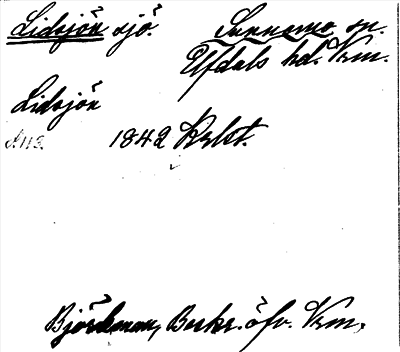 Lidsjön sjö. Sunnemo sn.
Elfdals hd. Vrm.
Lidsjön
1842 Krbt.
Björkman, Beskr. öfv. Vrm.